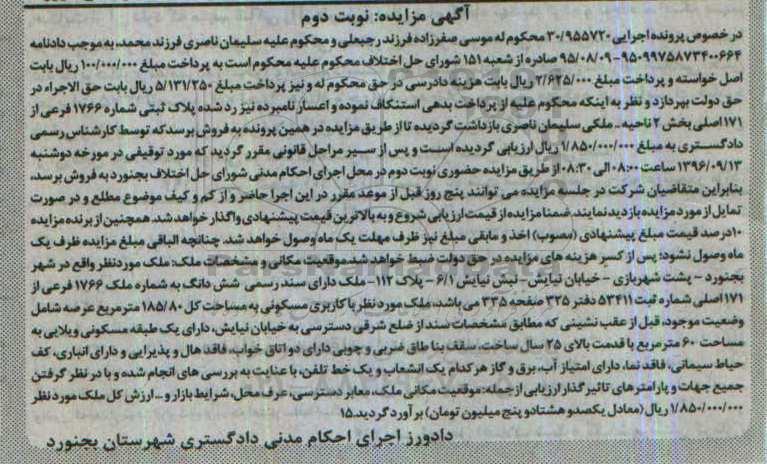 آگهی مزایده: نوبت دوم
در خصوص پرونده اجرایی ۳۰/۹۵۵۷۲۰ محکوم له موسی صفرزاده فرزند رجبعلی و محکوم علیه سلیمان ناصری فرزند محمد، به موجب دادنامه
۹۵۰۹۹۷۵۸۷۳۴۰۰۶۶۴-۹۵/۰۸/۰۹ صادره از شعبه ۱۵۱ شورای حل اختلاف محکوم علیه محکوم است به پرداخت مبلغ ۱۰۰/۰۰۰/۰۰۰ ریال بابت
اصل خواسته و پرداخت مبلغ ۲/۶۲۵/۰۰۰ ریال بابت هزینه دادرسی در حق محکوم له و نیز پرداخت مبلغ ۵/۱۳۱/۲۵۰ ریال بابت حق الاجراء در
حق دولت بپردازد و نظر به اینکه محکوم علیه از پرداخت بدهی استنکاف نموده و اعسار نامبرده نیز رد شده پلاک ثبتی شماره ۱۷۶۶ فرعی از
۱۷۱ اصلی بخش ۲ ناحیه - ملکی سلیمان ناصری بازداشت گردیده تا از طریق مزایده در همین پرونده به فروش برسد که توسط کارشناس رسمی
دادگستری به مبلغ ۱/۸۵۰/۰۰۰/۰۰۰ ریال ارزیابی گردیده است و پس از سیر مراحل قانونی مقرر گردید که مورد توقیفی در مورخه دوشنبه
۱۳۹۶/۰۹/۱۳ ساعت ۰۸:۰۰ الی ۰۸:۳۰ از طریق مزایده حضوری نوبت دوم در محل اجرای احکام مدنی شورای حل اختلاف بجنورد به فروش برسد،
بنابراین متقاضیان شرکت در جلسه مزایده می توانند پنج روز قبل از موعد مقرر در این اجرا حاضر و از کم و کیف موضوع مطلع و در صورت
تمایل از مورد مزایده بازدید نمایند. ضمنا مزایده از قیمت ارزیابی شروع و به بالاترین قیمت پیشنهادی واگذار خواهد شد. همچنین از برنده مزایده
۱۰درصد قیمت مبلغ پیشنهادی (مصوب) اخذ و مابقی مبلغ نیز ظرف مهلت یک ماه وصول خواهد شد. چنانچه الباقی مبلغ مزایده ظرف یک
ماه وصول نشود؛ پس از کسر هزینه های مزایده در حق دولت ضبط خواهد شد. موقعیت مکانی و مشخصات ملک: ملک موردنظر واقع در شهر
بجنورد - پشت شهربازی - خیابان نیایش- نبش نیایش ۶/۱ - پلاک ۱۱۲- ملک دارای سند رسمی شش دانگ به شماره ملک ۱۷۶۶ فرعی از
۱۷۱ اصلی شماره ثبت ۵۳۴۱۱ دفتر ۳۲۵ صفحه ۳۳۵ می باشد، ملک مورد نظر با کاربری مسکونی به مساحت کل ۱۸۵/۸۰ مترمربع عرصه شامل
وضعیت موجود، قبل از عقب نشینی که مطابق مشخصات سند از ضلع شرقی دسترسی به خیابان نیایش، دارای یک طبقه مسکونی ویلایی به
مساحت ۶۰ مترمربع با قدمت بالای ۲۵ سال ساخت، سقف بنا طاق ضربی و چوبی دارای دو اتاق خواب، فاقد هال و پذیرایی و دارای انباری، کف
حیاط سیمانی، فاقد نما، دارای امتیاز آب، برق و گاز هر کدام یک انشعاب و یک خط تلفن، با عنایت به بررسی های انجام شده و با در نظر گرفتن
جمیع جهات و پارامترهای تاثیر گذار ارزیابی از جمله: موقعیت مکانی ملک، معابر دسترسی، عرف محل، شرایط بازار و ... ارزش کل ملک مورد نظر
۱/۸۵۰/۰۰۰/۰۰۰ ریال (معادل یکصد و هشتاد و پنج میلیون تومان) برآورد گردید.۱۵
دادورز اجرای احکام مدنی دادگستری شهرستان بجنورد